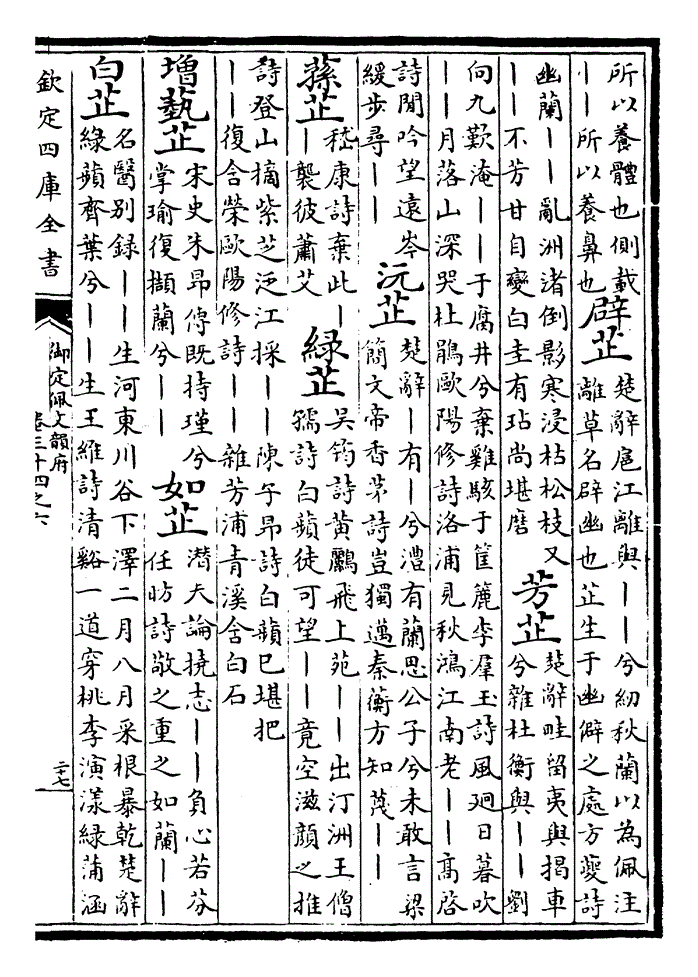 所以養體也側載
——所以養鼻也
辟芷
楚辭扈江離與——兮紉秋蘭以為佩注
離草名辟幽也芷生于幽僻之處方夔詩
幽蘭——亂洲渚倒影寒浸枯松枝又
——不芳甘自變白圭有玷尚堪磨
芳芷
楚辭畦留夷與揭車
兮雜杜衡與——劉
向九歎淹——于腐井兮棄雞駭于筐簏李羣玉詩風廻日暮吹
——月落山深哭杜鵑歐陽修詩洛浦見秋鴻江南老——高啓
詩閒吟望遠岑
緩步尋——
沅芷
楚辭—有—兮澧有蘭思公子兮未敢言梁
簡文帝香茅詩豈獨邁秦蘅方知蔑——
蓀芷
嵇康詩棄此—
—襲彼蕭艾
綠芷
吳筠詩黄鸝飛上苑——出汀洲王僧
孺詩白蘋徒可望——竟空滋顔之推
詩登山摘紫芝泛江採——陳子昂詩白蘋已堪把
——復含榮歐陽修詩——雜芳浦青溪含白石
增藝芷
宋史朱昂傳既持瑾兮
掌瑜復擷蘭兮——
如芷
潛夫論撓志——負心若芬
任昉詩敬之重之如蘭——
白芷
名醫别録——生河東川谷下澤二月八月采根暴乾楚辭
綠蘋齊葉兮——生王維詩清谿一道穿桃李演漾綠蒲涵
欽定四庫全書
御定佩文韻府
卷三十四之六
二十七